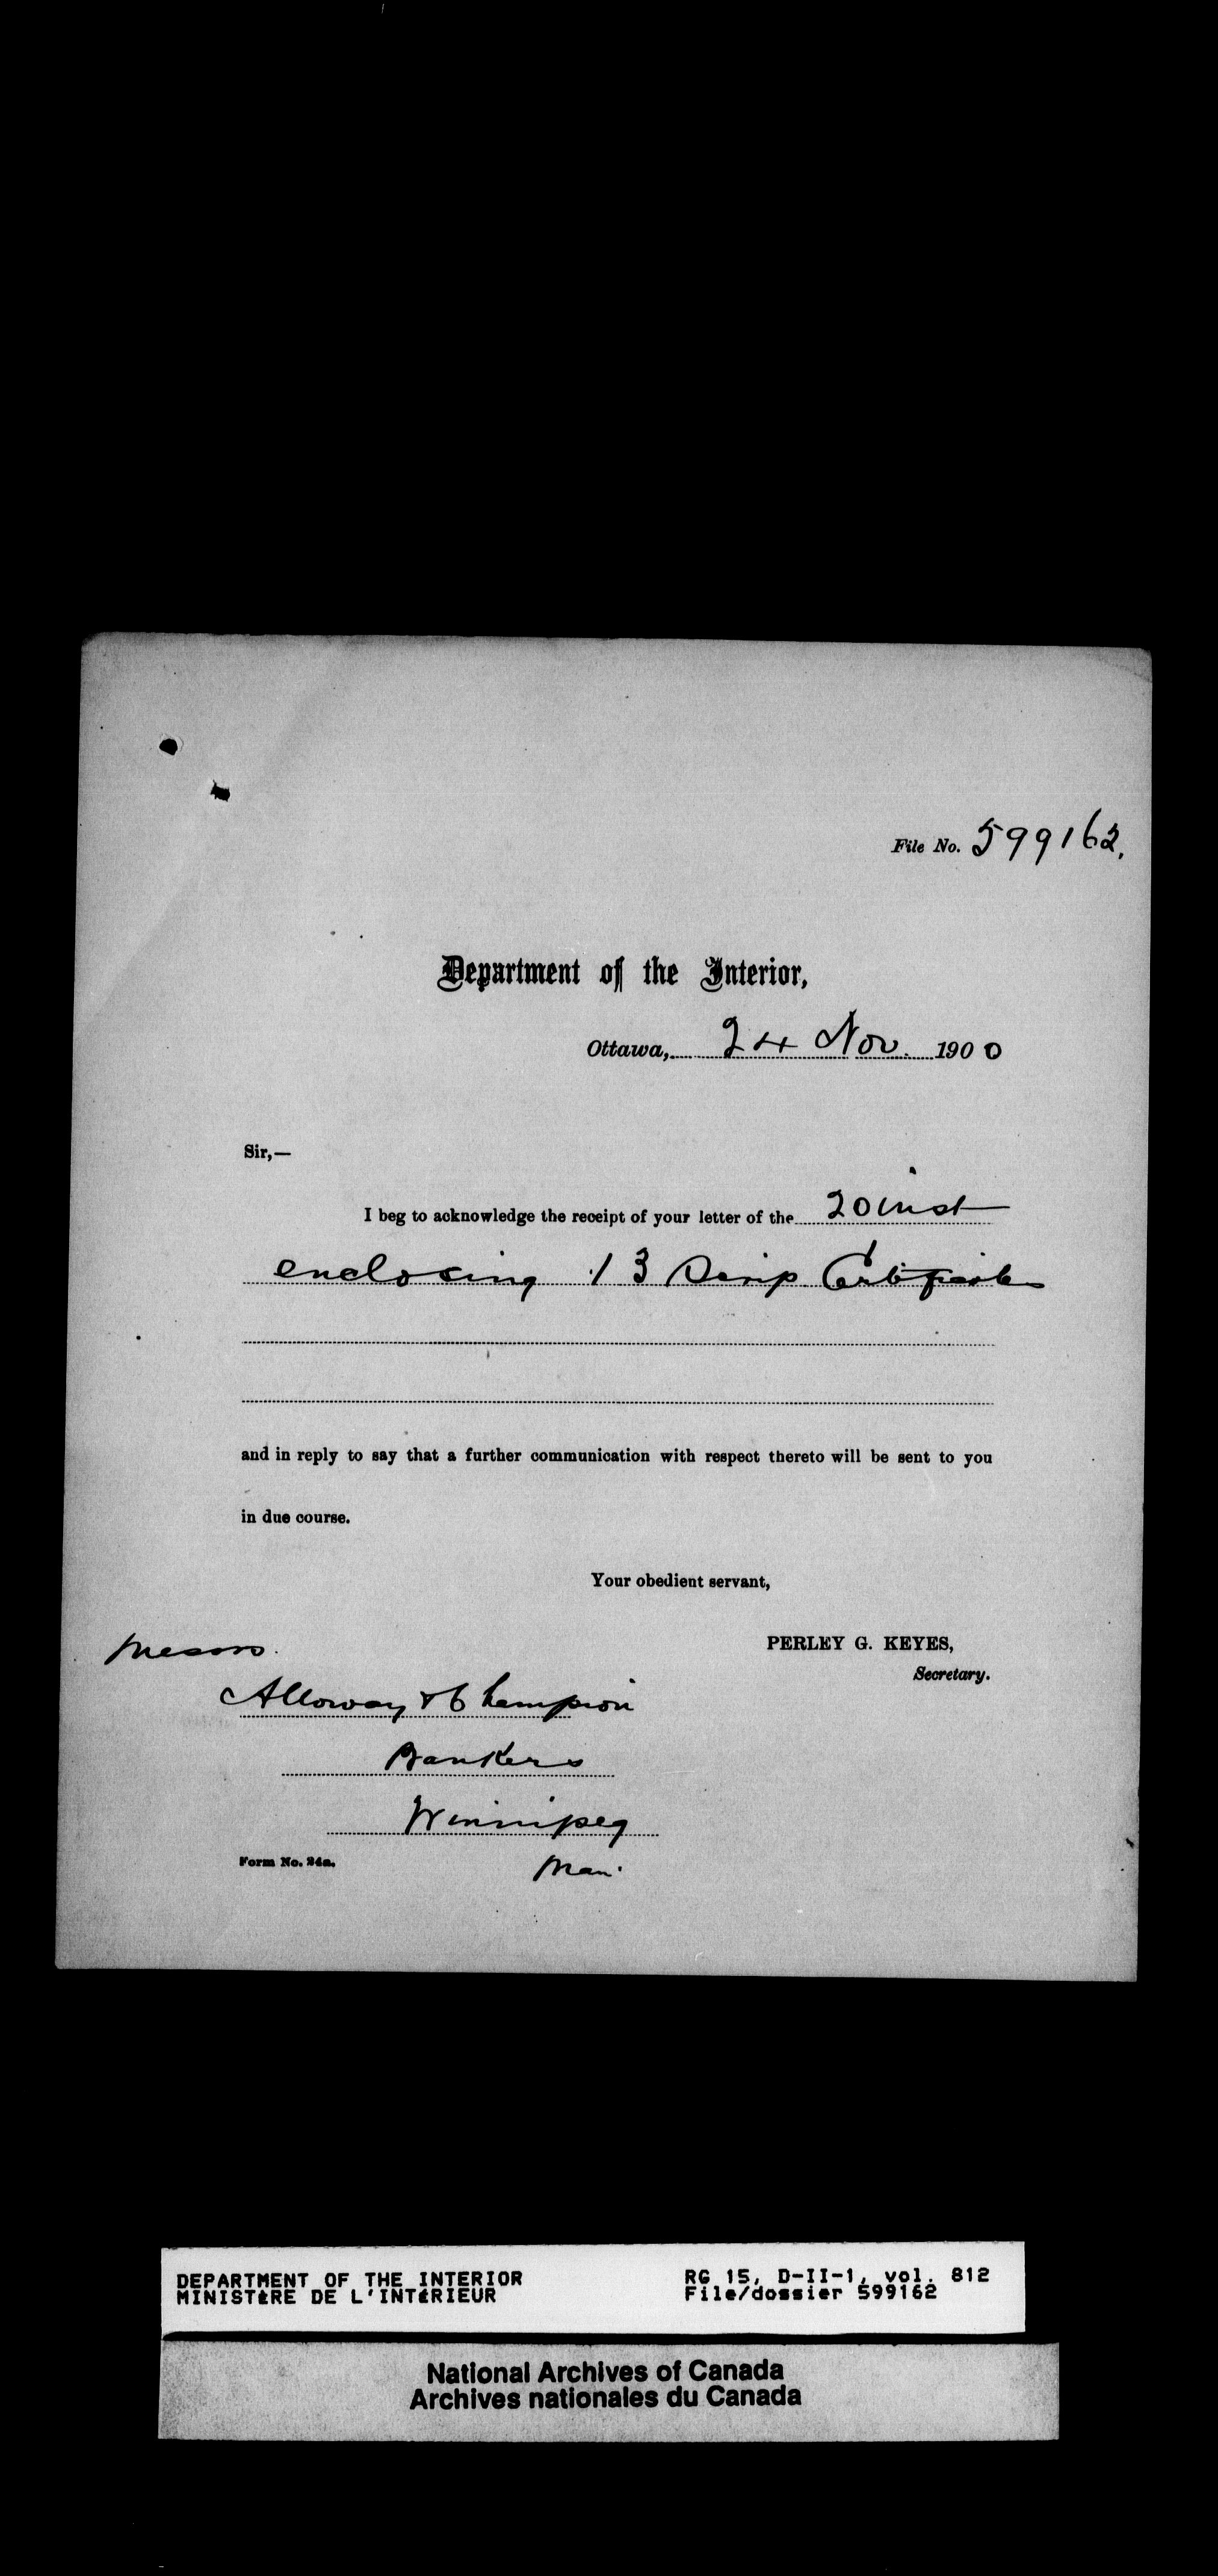 File No. 599162.
Department of the Interior,
Ottawa, 24 Nov. 1900
Sir,—
I beg to acknowledge the receipt of your letter of the 20 inst
enclosing 13 Scrip Certificates
and in reply to say that a further communication with respect thereto will be sent to you
in due course.
Your obedient servant,
PERLEY G. KEYES,
Secretary.
Messrs.
Alloway & Champion
Bankers
Winnipeg
Man.
Form No. 24a.
DEPARTMENT OF THE INTERIOR RG 15, D-II-1, vol. 812
MINISTÈRE DE L'INTÉRIEUR File/dossier 599162
National Archives of Canada
Archives nationales du Canada